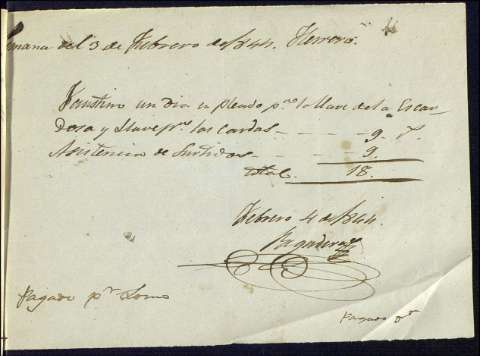 Semana del 3 de Febrero de 1844. Herrero.
Faustino un dia en pleado pra. la llave de la Escar
dosa y llave pra. las cardas - - - 9. r.
Asistencia de Surtidos - - - 9.
total. 18.
Febrero 4 de 1844.
Pagado pr. Lomo
Pagado